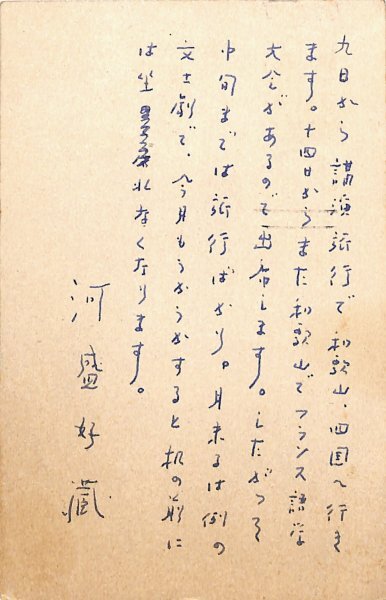 九日から講演旅行で和歌山、四国へ行き
ます。十四日からまた和歌山でフランス語学
大会があるので出席します。したがつて
中旬までは旅行ばかり。月末には例の
文士劇で、今月もうかうかすると机の前に
は坐れなくなります。
河盛好藏